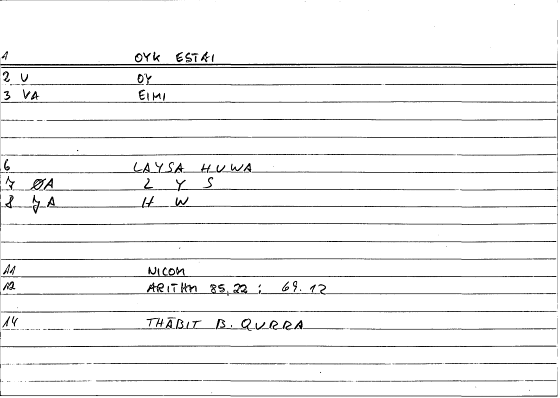 1 OYK ESTAI
2 U OY
3 VA EIMI
6 LAYSA HUWA
7 ØA L Y S
8 JA H W
11 NICOM
12 ARITHM 85,22 : 69.12
14 THĀBIT B. QURRA